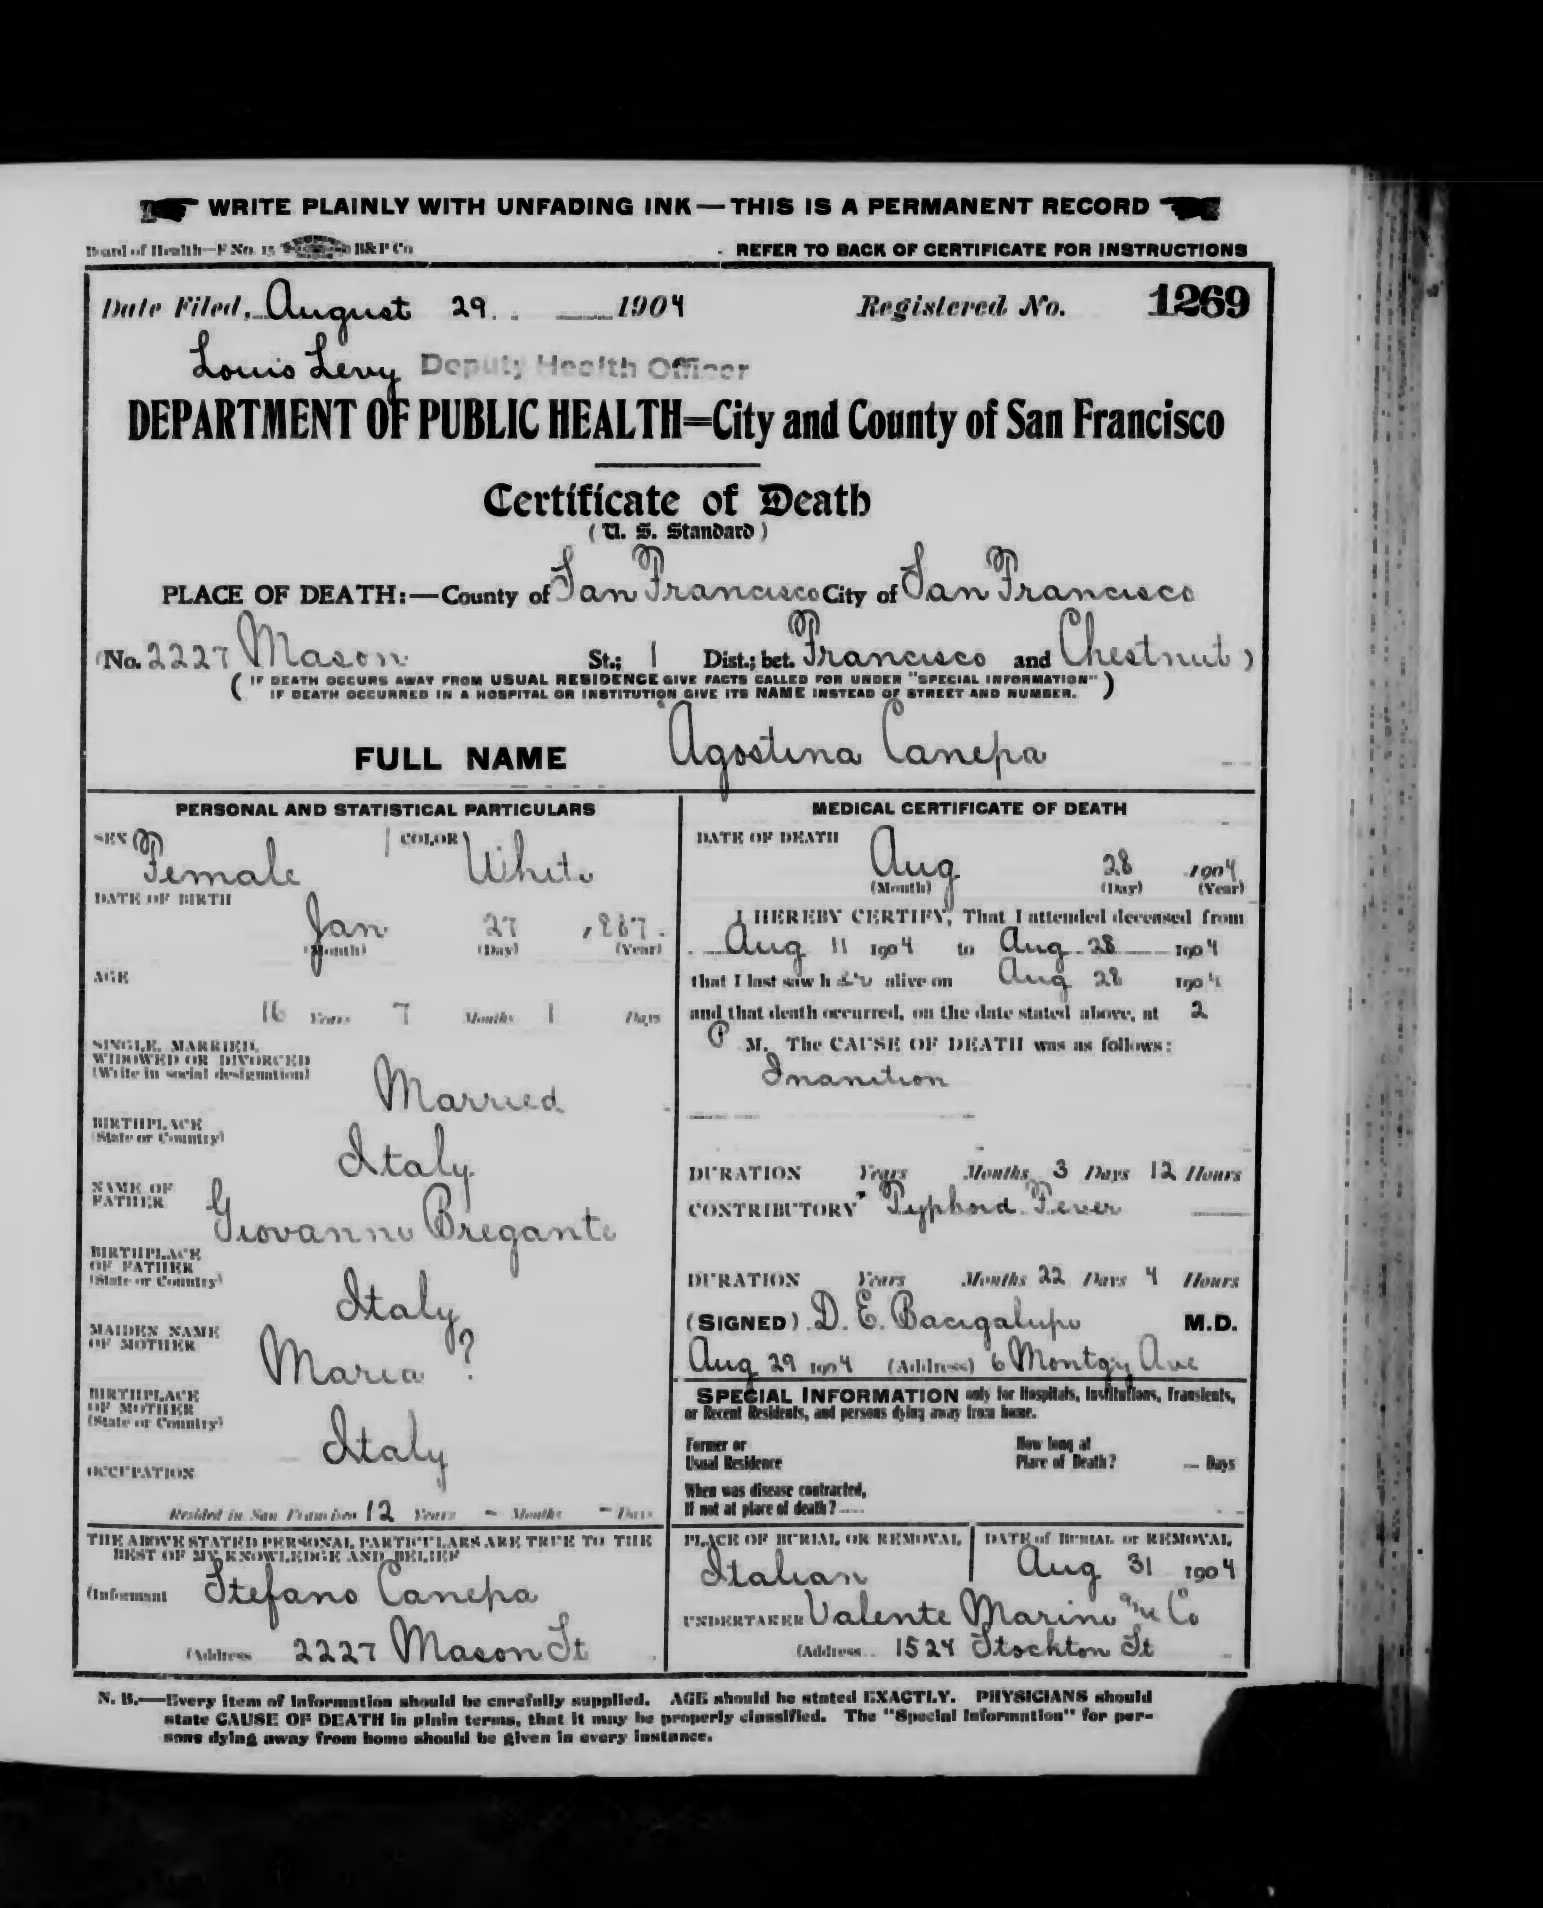 WRITE PLAINLY WITH UNFADING INK—THIS IS A PERMANENT RECORD
Board of Health—F No. 15 B&P Co
REFER TO BACK OF CERTIFICATE FOR INSTRUCTIONS
Date Filed, August 29 1904 Registered No. 1269
Louis Levy Deputy Health Officer
DEPARTMENT OF PUBLIC HEALTH=City and County of San Francisco
Certificate of Death
(U. S. Standard)
PLACE OF DEATH:—County of San Francisco City of San Francisco
(No. 2227 Mason St.; 1 Dist.; bet. Francisco and Chestnut)
(IF DEATH OCCURS AWAY FROM USUAL RESIDENCE GIVE FACTS CALLED FOR UNDER "SPECIAL INFORMATION"
IF DEATH OCCURRED IN A HOSPITAL OR INSTITUTION GIVE ITS NAME INSTEAD OF STREET AND NUMBER.)
FULL NAME Agostina Canepa
PERSONAL AND STATISTICAL PARTICULARS
SEX Female COLOR White
DATE OF BIRTH
Jan 27
(Month) (Day) (Year)
AGE
Years 7 Months 1 Days
SINGLE, MARRIED,
WIDOWED OR DIVORCED
(Write in social designation)
Married
BIRTHPLACE
(State or Country)
Italy
NAME OF
FATHER
Giovanni Bregante
BIRTHPLACE
OF FATHER
(State or Country)
Italy
MAIDEN NAME
OF MOTHER
Maria ?
BIRTHPLACE
OF MOTHER
(State or Country)
Italy
OCCUPATION
Resided in San Francisco 12 Years - Months - Days
THE ABOVE STATED PERSONAL PARTICULARS ARE TRUE TO THE
BEST OF MY KNOWLEDGE AND BELIEF
(Informant Stefano Canepa
(Address 2227 Mason St
MEDICAL CERTIFICATE OF DEATH
DATE OF DEATH
Aug 28 1904
(Month) (Day) (Year)
I HEREBY CERTIFY, That I attended deceased from
Aug 11 1904 to Aug 28 1904
that I last saw her alive on Aug 28 1904
and that death occurred, on the date stated above, at 2
P M. The CAUSE OF DEATH was as follows:
Inanition
DURATION Years Months 3 Days 12 Hours
CONTRIBUTORY Typhoid Fever
DURATION Years Months 22 Days 4 Hours
(SIGNED) D. E. Bacigalupo M.D.
Aug 29 1904 (Address) 6 Montgy Ave
SPECIAL INFORMATION only for Hospitals, Institutions, Transients,
or Recent Residents, and persons dying away from home.
Former or
Usual Residence
How long at
Place of Death? — Days
When was disease contracted,
If not at place of death?
PLACE OF BURIAL OR REMOVAL
Italian
DATE of BURIAL or REMOVAL
Aug 31 1904
UNDERTAKER Valente Marini Co
(Address 1524 Stockton St
N. B.—Every item of information should be carefully supplied. AGE should be stated EXACTLY. PHYSICIANS should
state CAUSE OF DEATH in plain terms, that it may be properly classified. The "Special Information" for per-
sons dying away from home should be given in every instance.